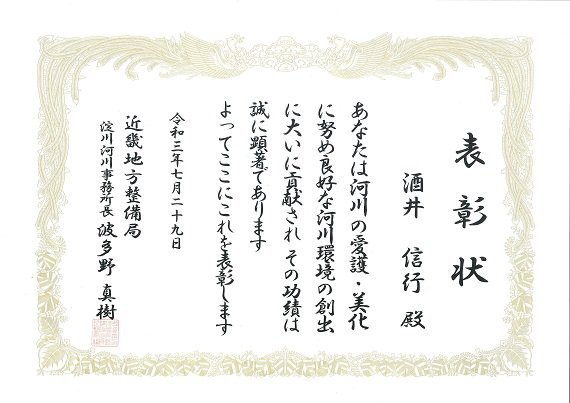 表彰状
酒井 信行 殿
あなたは河川の愛護・美化
に努め良好な河川環境の創出
に大いに貢献され その功績は
誠に顕著であります
よってここにこれを表彰します
令和三年七月二十九日
近畿地方整備局
淀川河川事務所長 波多野 真樹